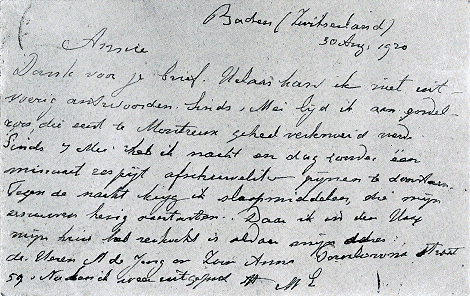 Baden (Zwitserland)
30 Aug. 1920
Annie
Dank voor je brief. Helaas kan ik niet uit-
voerig antwoorden. Sinds Mei lijd ik aan gordel-
roos, die eerst te Montreux geheel verkeerd werd
Sinds 7 Mei heb ik nacht en dag zonder één
minuut respijt afschuwelijke pijnen te doorstaan.
Tegen de nacht krijg ik slaapmiddelen, die mijn
zenuwen hevig Daar ik in den Haag
mijn huis heb verkocht is aldaar mijn adres:
de Heeren M de Jong en Zoon Anna Paulowna straat
59. Nu ben ik weer uitgeput